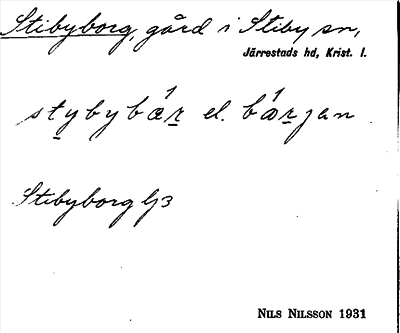 Stibyborg, gård i Stiby sn,
Järrestads hd, Krist. l.
stybybǽr el. bǽrjan
Stibyborg
NILS NILSSON 1931